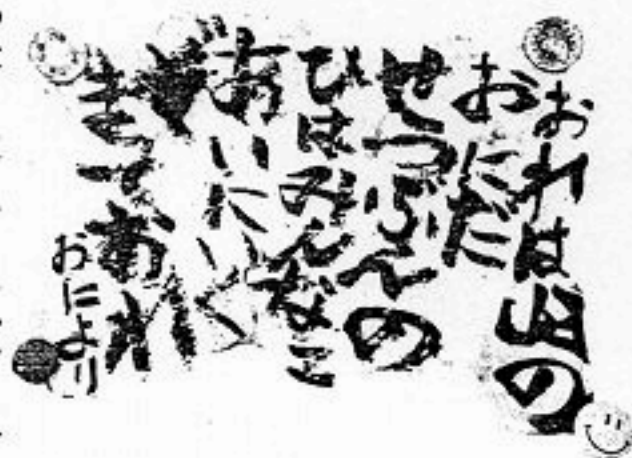 おれは山の
おにだ
せつぶんの
ひはみんなに
あいにいく
ぞ
まっておれ
おにより